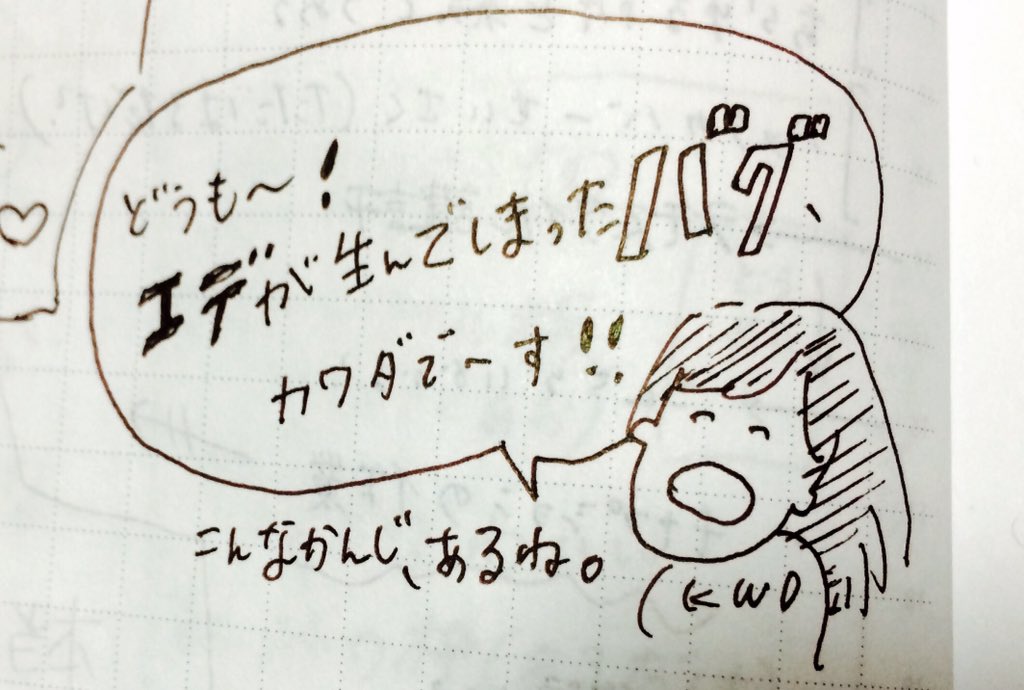 どうも〜！
エデが生んでしまったバグ、
カワダでーす!!
こんなかんじ、あるね。
KWD